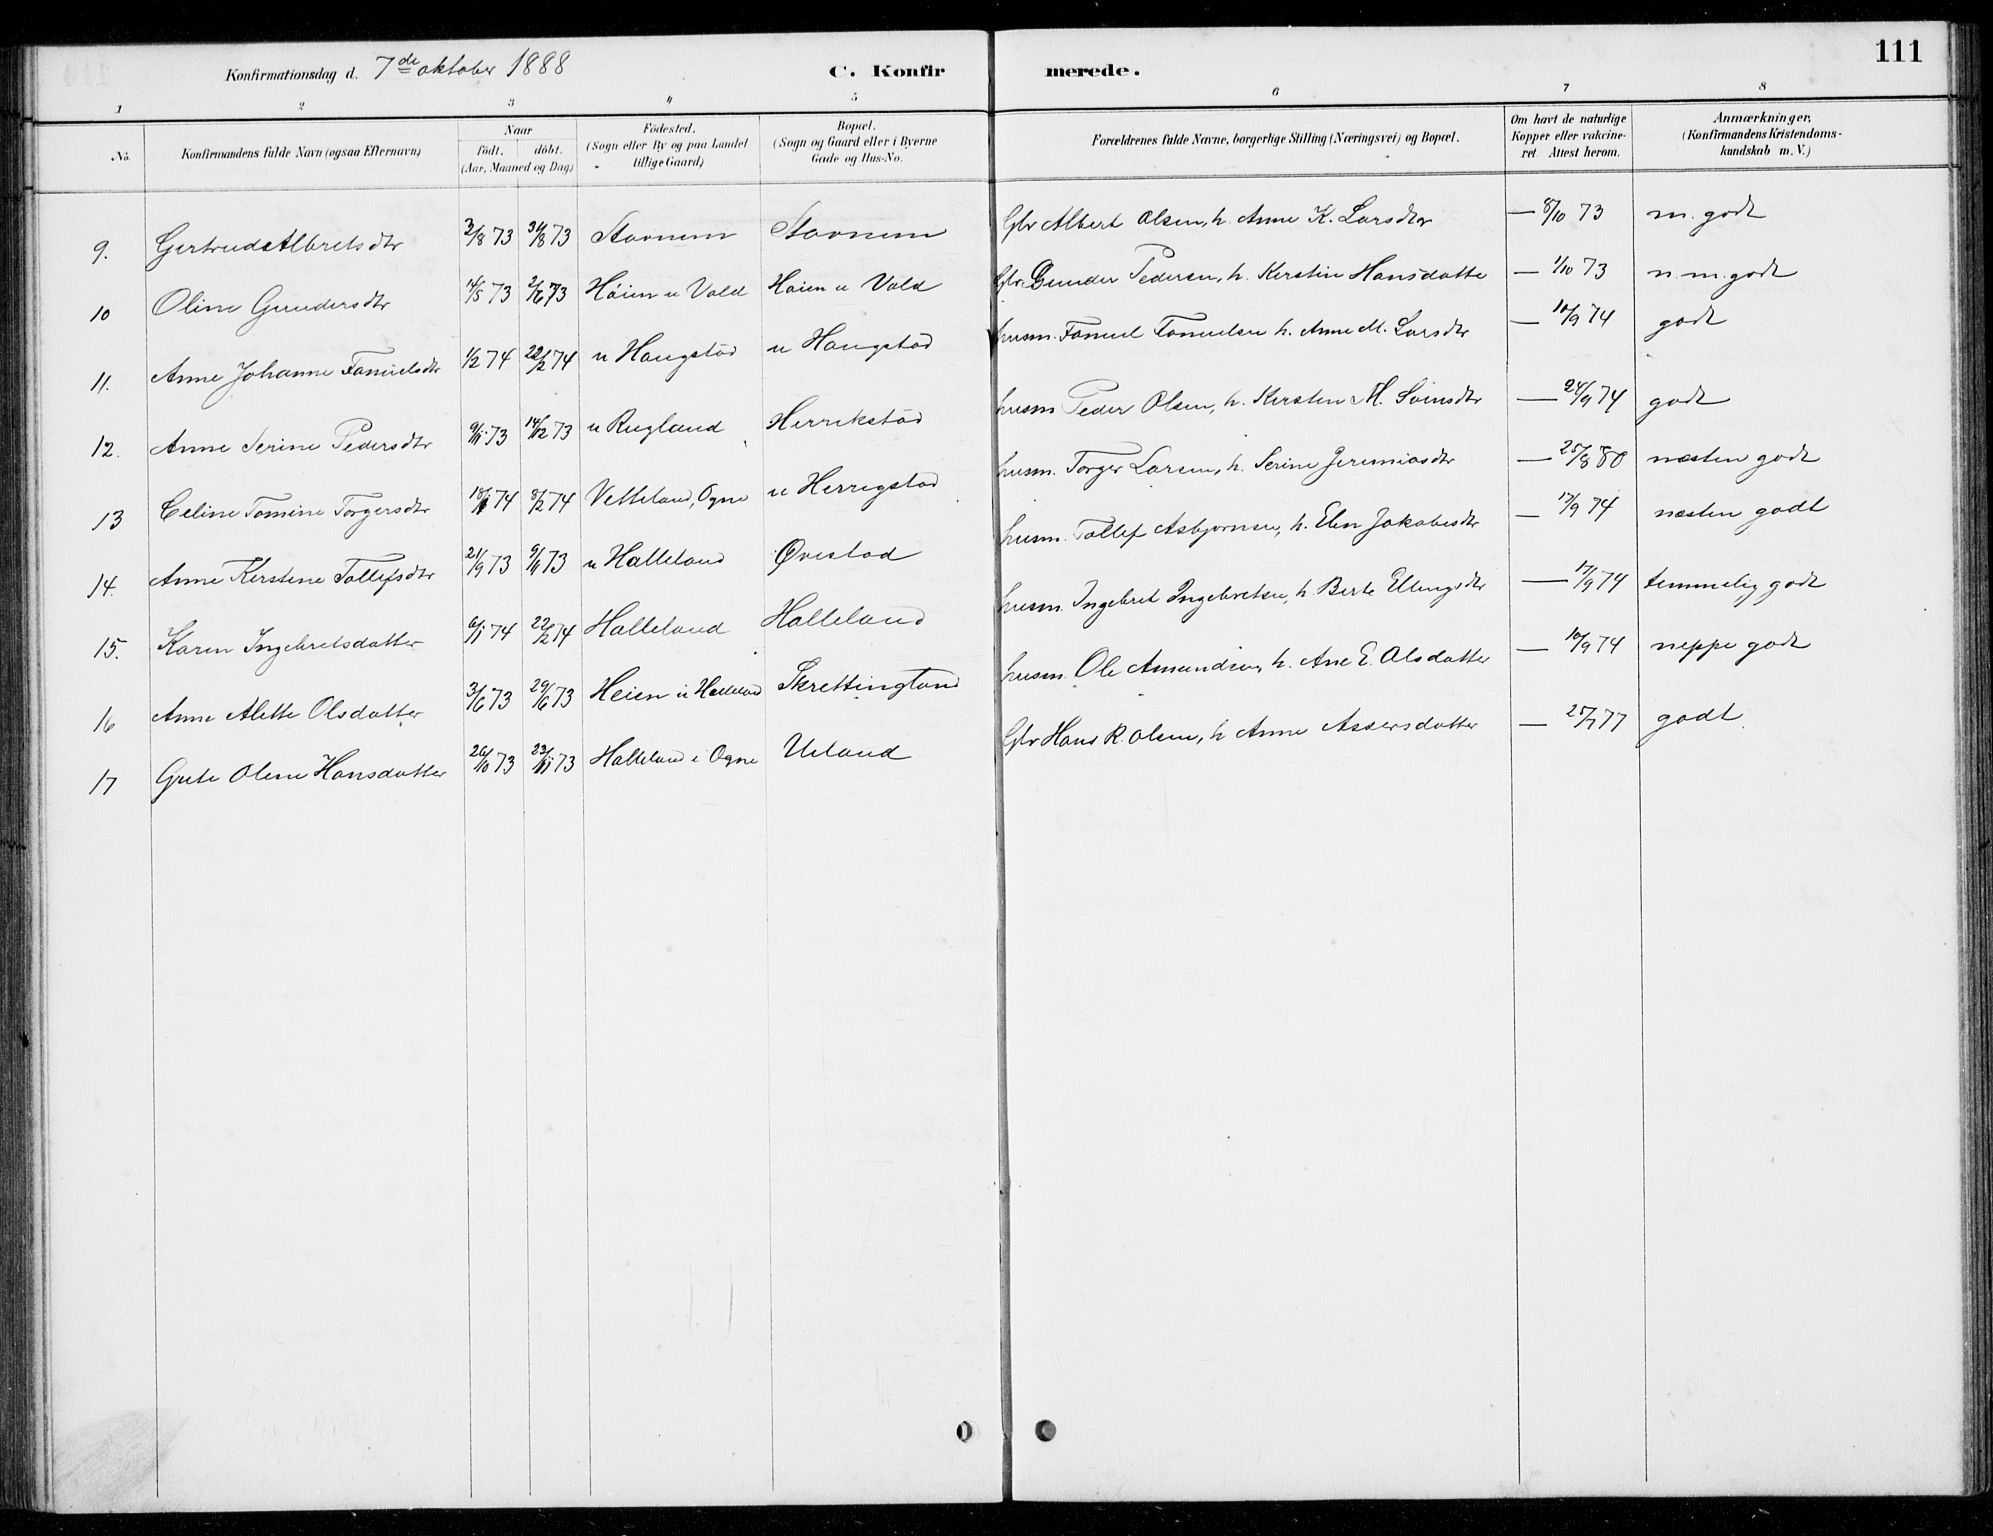 Konfirmationsdag d. 7de oktober 1888 C. Konfirmerede. 111
1 2 3 4 5 6 7 8
No. Konfirmandens fulde Navn (ogsaa Efternavn) Naar födt. döbt. (Aar, Maaned og Dag) Födested. (Sogn eller By og paa Landet tillige Gaard) Bopæl. (Sogn og Gaard eller i Byerne Gade og Hus-No. Forældrenes fulde Navne, borgerlige Stilling (Næringsvei) og Bopæl. Om havt de naturlige Kopper eller vakcineret. Attest herom. Anmærkninger, (Konfirmandens Kristendomskundskab m. V.)
9. Gertrud Albretsdtr 3/8 73 31/8 73 Stavnem Stavnem Gbr Albert Olsen, h. Anne K. Larsdtr — 8/10 73 m. godt
10 Oline Gundersdtr 14/5 73 2/6 73 Höien u Vold Høien u Vold Gbr. Gunder Pedersen, h. Kerstin Hansdatte — 1/10 73 n. m. godt
11. Anne Johanne Fanuelsdtr 1/2 74 22/2 74 u Haugstad u Haugstad husm. Fanuel Fanuelsen h. Anne M. Larsdtr — 10/9 74 godt
12. Anne Serine Pedersdtr 9/11 73 14/12 73 u Rugland Herrikstad husm Peder Olsen, h. Kersten M. Svinsdtr — 24/9 74 godt
13 Celine Tomine Torgersdtr 18/1 74 8/2 74 Vetteland, Ogne u Herregstad husm. Torger Larsen, h. Serine Jeremiasdtr — 25/8 80 næsten godt
14. Anne Kerstine Tollefsdtr 21/9 73 9/11 73 u Halleland Øvestad husm. Tollef Asbjørnsen, h. Elen Jakobsdtr — 17/9 74 næsten godt
15. Karen Ingebretsdatter 6/1 74 22/2 74 Halleland Halleland husm. Ingebret Ingebretsen, h Berte Ellingsdtr — 17/9 74 temmelig godt
16 Anne Alette Olsdatter 3/6 73 29/6 73 Heien u Halleland Skrettingland husm. Ole Amundsen, h. Ane E. Olsdatter — 10/9 74 neppe godt
17 Grete Oline Hansdatter 26/10 73 23/11 73 Halleland i Ogne Ueland Gbr Hans R. Olsen, h Anne Assersdatter — 25/7 77 godt